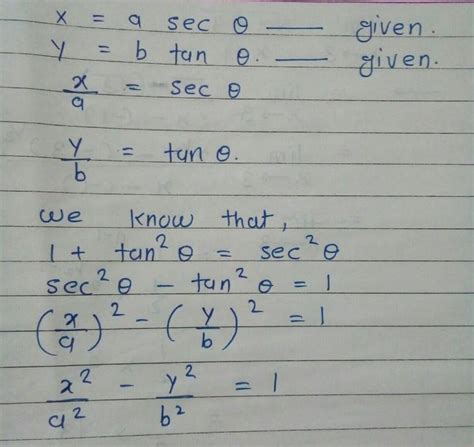 x = a sec θ — given.
y = b tan θ. — given.
x/a = sec θ
y/b = tan θ.
we know that,
1 + tan² θ = sec² θ
sec² θ - tan² θ = 1
(x/a)² - (y/b)² = 1
x²/a² - y²/b² = 1